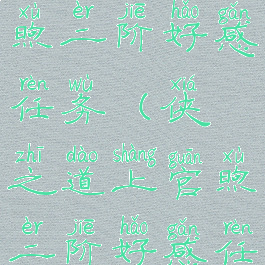 xù èr jiē hǎo gǎn
煦二阶好感
rèn wù xiá
任务（侠
zhī dào shàng guān xù
之道上官煦
èr jiē hǎo gǎn rèn
二阶好感任